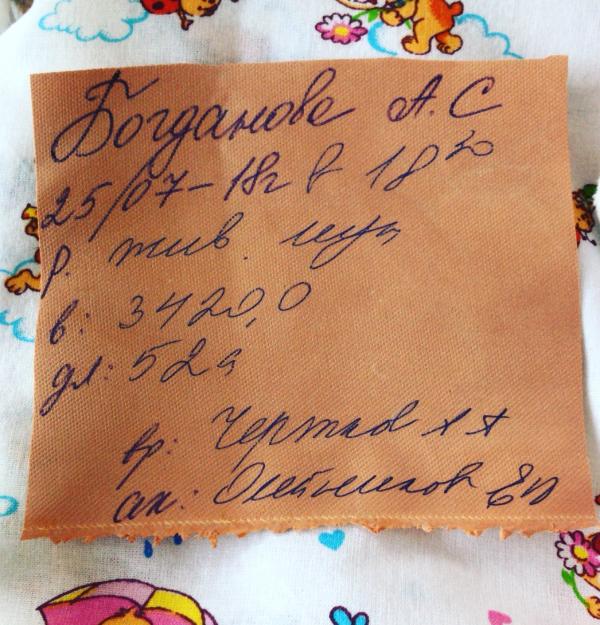 Богданова А.С
25/07-18г в 18 30
р. жив. муж
в: 3420,0
дл: 52
вр: Чертков А А
ак: Олейников ЕВ